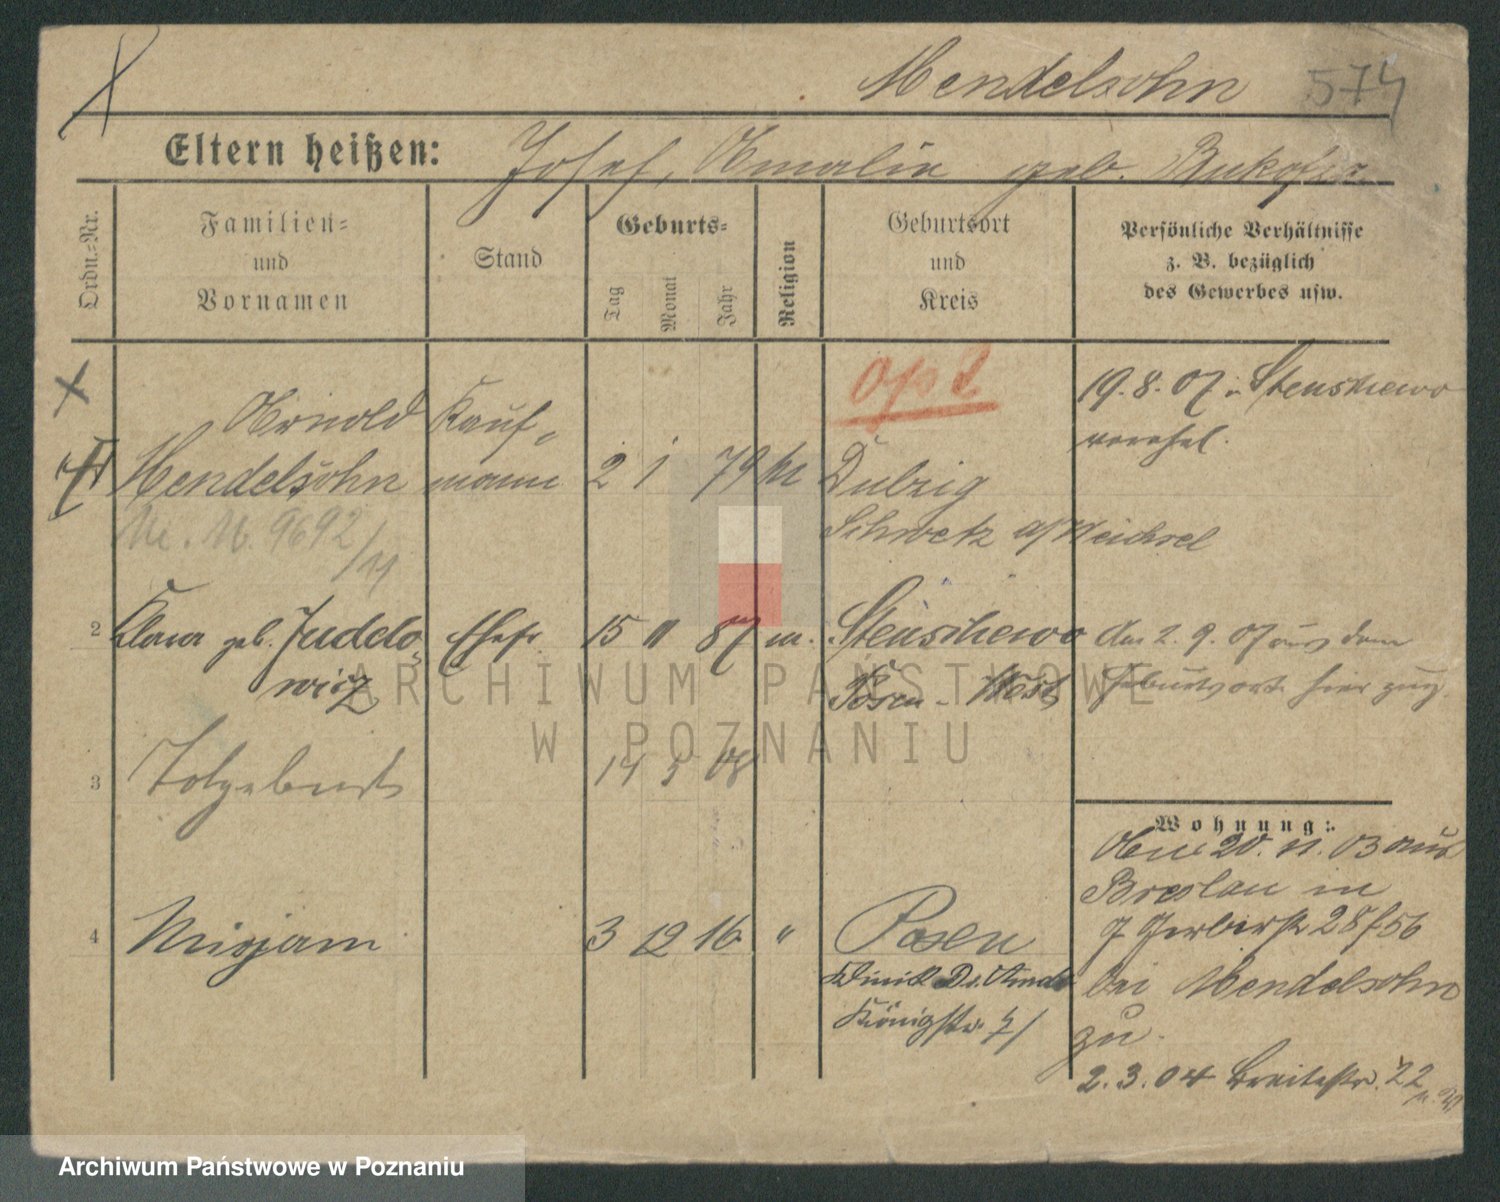 Mendelsohn 574
Eltern heißen: Josef, Amalie geb. Bukofzer
Ordn.=Nr.
Familien=
und
Vornamen
Stand
Geburts=
Tag
Monat
Jahr
Religion
Geburtsort
und
Kreis
Persönliche Verhältnisse
z. B. bezüglich
des Gewerbes usw.
Arnold
Mendelsohn
9692
Kauf=
mann
2 1 79 m
opt
Dubzig
Schwetz a/Weichsel
19.8.07 in Stenschewo
verehel.
2 Clara geb. Judelo=
wicz
Ehefr. 15 11 87 m.
Stenschewo
Posen-West
den 2.9.07 aus dem
Geburtsort hier zug.
3 Totgeburt 14 5 08
4 Mirjam 3 12 16 "
Posen
Klinik Dr.
Königstr.
Wohnung:
20.11.03 aus
Breslau in
Gerberstr 28
bei Mendelsohn
zu.
2.3.04 Breitestr. 22
ARCHIWUM PAŃSTWOWE
W POZNANIU
Archiwum Państwowe w Poznaniu